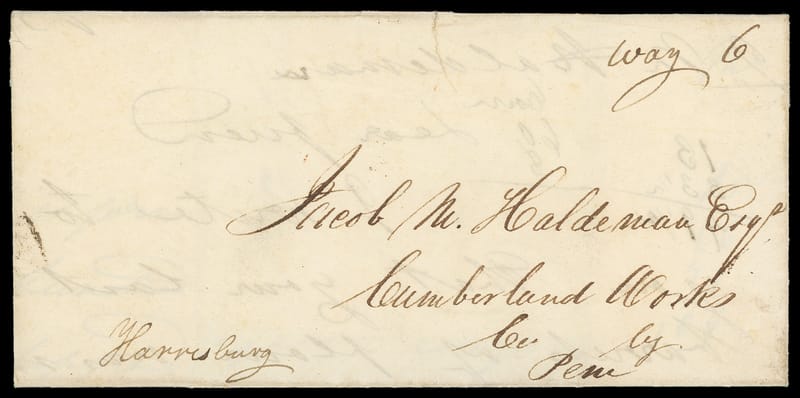 way 6
Jacob M. Haldeman Esqr
Cumberland Works
Co by
Harrisburg
Penn